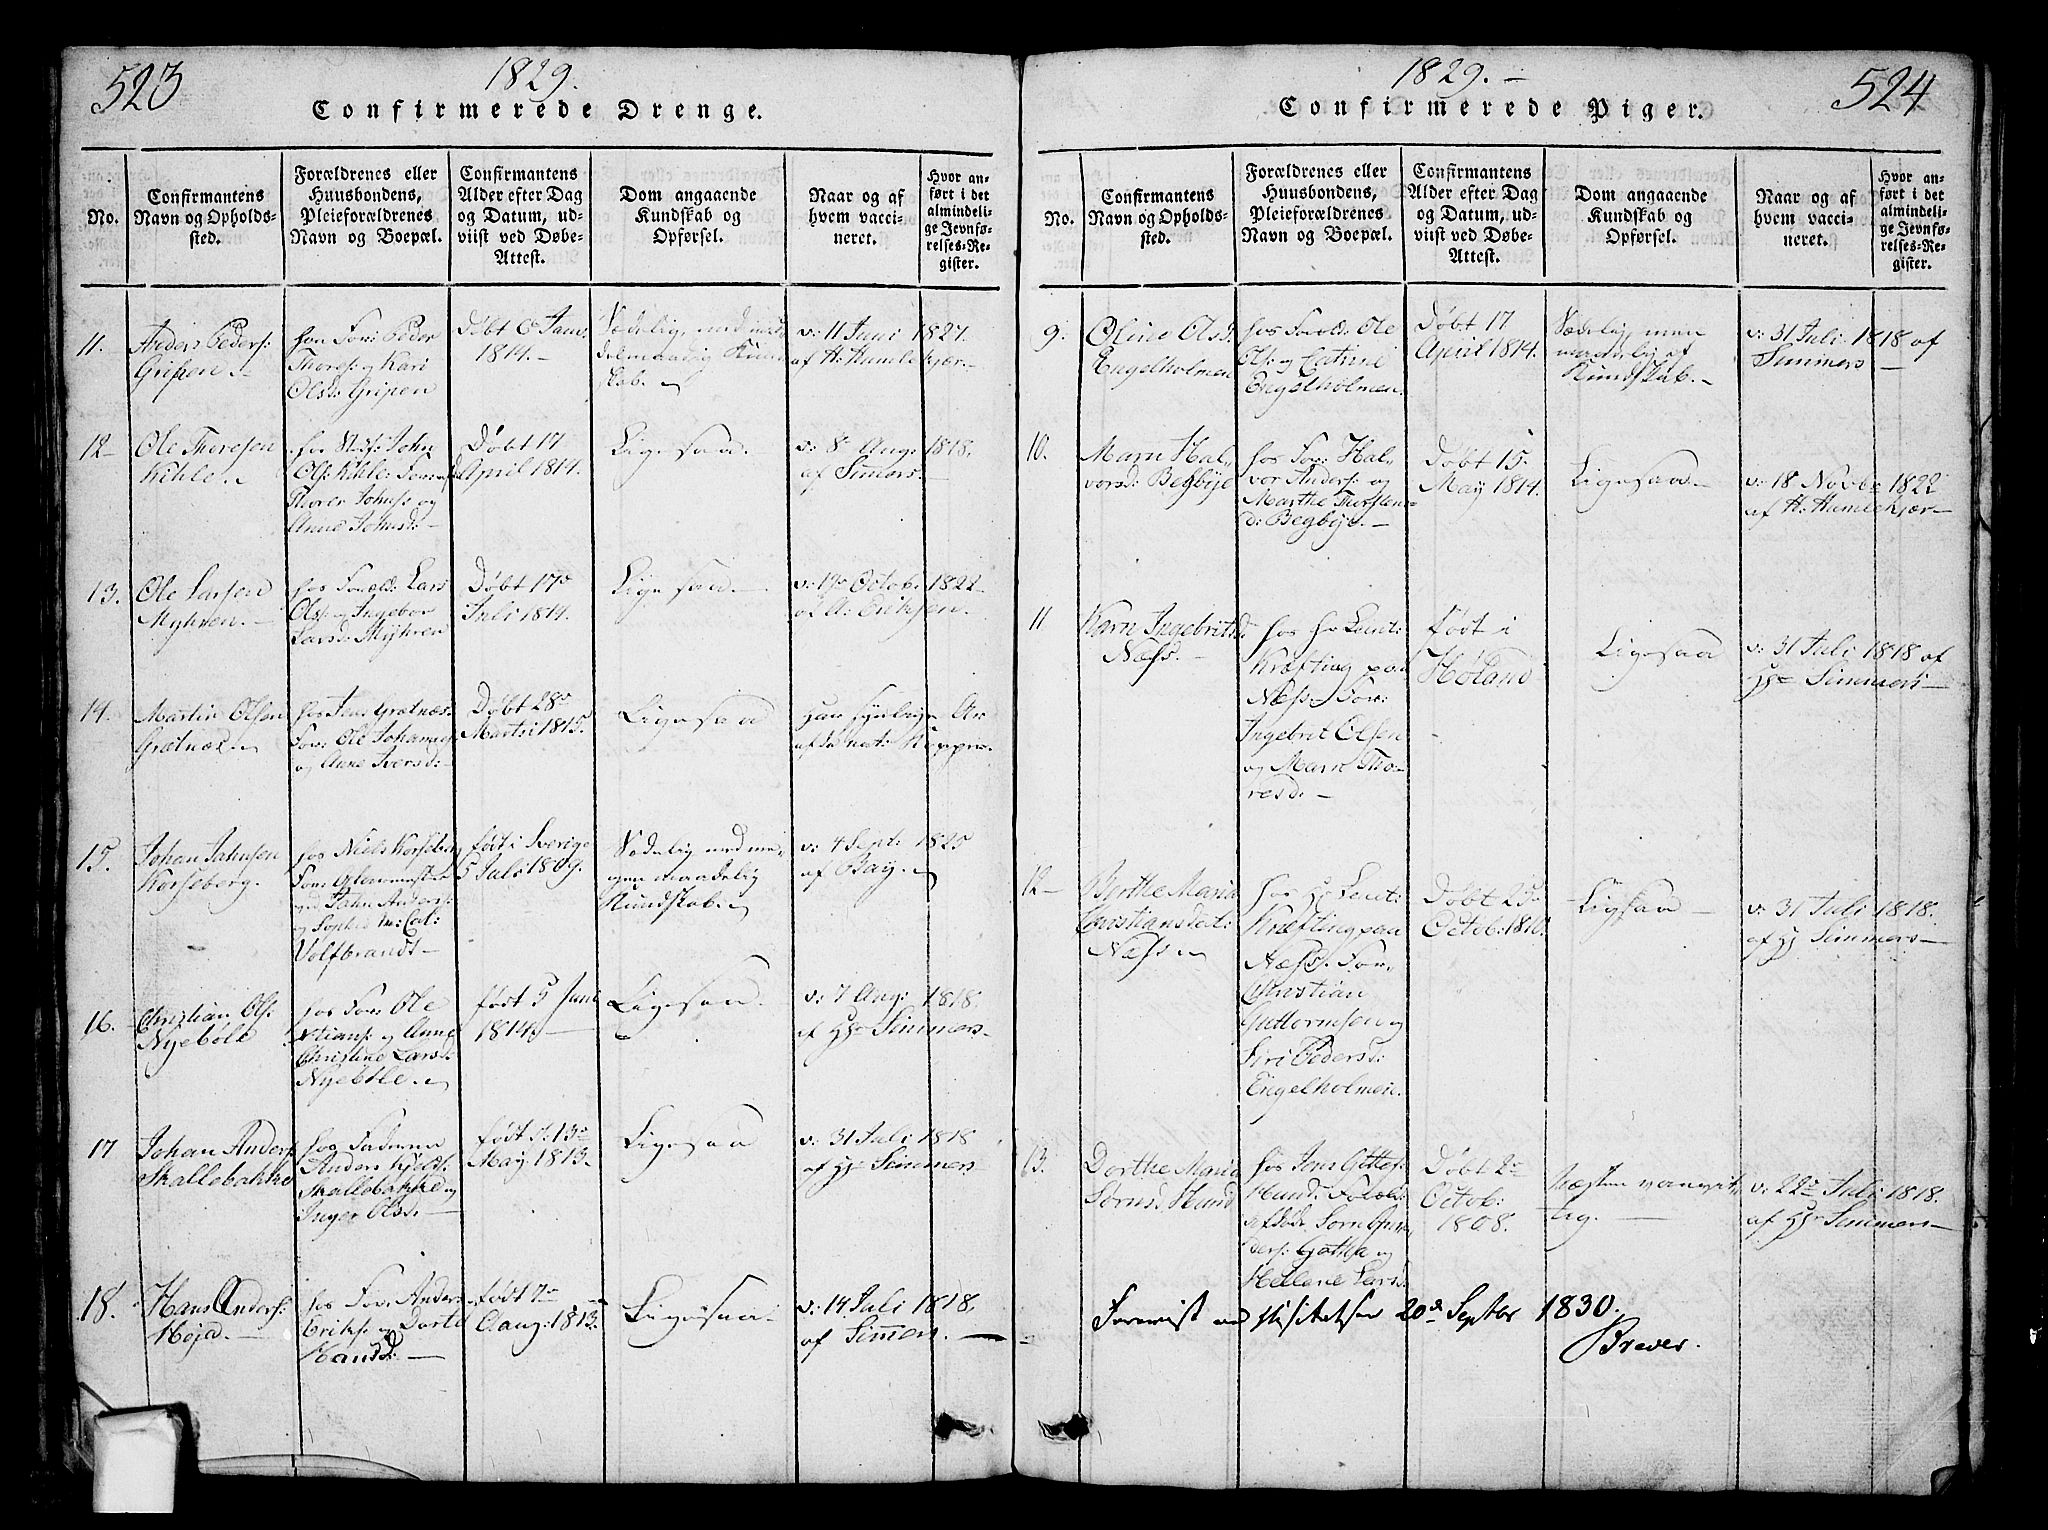 523
1829.
Confirmerede Drenge.
No.
Confirmantens
Navn og Opholds-
sted.
Forældrenes eller
Huusbondens,
Pleieforældrenes
Navn og Boepæl.
Confirmantens
Alder efter Dag
og Datum, ud-
viist ved Døbe-
Attest.
Dom angaaende
Kundskab og
Opførsel.
Naar og af
hvem vacci-
neret.
Hvor an-
ført i det
almindeli-
ge Jevnfø-
relses-Re-
gister.
11.
Anders Peders:
Gripen
hos For: Peder
Thores: og Kari
Olsd: Gripen
Døbt 6 Janv.
1814.
Sædelig, med
delmaadig Kund
skab.
v: 11 Juni 1827.
af H. Humlekjær
12
Ole Thoresen
Kihle.
hos John
Ols: Kihle.
Thorer Johns: og
Anne Johnsd:
Døbt 17
April 1814.
Ligesaa.
v: 8 Aug: 1818.
af Simers.
13.
Ole Larsen
Myhren.
hos Foræld: Lars
Ols: og Ingebor
Larsd: Myhren
Døbt 17
Juli 1814.
Ligesaa.
v: 19 Octob: 1822
af A: Eriksen.
14.
Martin Olsen
Grøtnæs
hos Jens Grøtnæs:
For: Ole Johannes:
og Anne Iversd:
Døbt 28
Marts 1815.
Ligesaa
Har synlige Ar
af de nat: Kopper.
15.
Johan Jahnsen
Korseberg.
hos Niels Korseberg
For: Glasmester
Jahn Anders:
og Sophie M: Cat:
Volfbrandt
født i Sverige
5 Juli 1809.
Sædelig med me-
gen maadelig
Kundskab.
v: 4 Sept: 1825
af Bay.
16.
Christian Ols:
Nyebøle
hos For: Ole
Xtians: og Anne
Christine Larsd:
Nyebøle.
født 5 Juni
1814.
Ligesaa.
v: 7 Aug: 1818.
af Hr Simmers.
17
Johan Anders:
Skallebakke
hos Faderen
Anders Kjelds:
Skallebakke og
Inger Olsd:
født d. 13
May 1813.
Ligesaa
v: 31 Juli 1818
af Hr Simmers
18.
Hans Anders:
Høja.
hos For: Anders
Eriks: og Dorte
Hansd:
født 7
Aug: 1813.
Ligesaa
v: 14 Juli 1818.
af Simers.
524
1829.
Confirmerede Piger.
No.
Confirmantens
Navn og Opholds-
sted.
Forældrenes eller
Huusbondens,
Pleieforældrenes
Navn og Boepæl.
Confirmantens
Alder efter Dag
og Datum, ud-
viist ved Døbe-
Attest.
Dom angaaende
Kundskab og
Opførsel.
Naar og af
hvem vacci-
neret.
Hvor an-
ført i det
almindeli-
ge Jevnfø-
relses-Re-
gister.
9.
Oline Olsd:
Engelholmen
hos Foræld: Ole
Ols: og Catrine
Engelholmen.
Døbt 17
April 1814.
Sædelig, men
maadelig af
Kundskab.
v: 31 Juli 1818 af
Simmers
10.
Maren Hal-
vorsd: Begbye
hos For: Hal-
vor Anders: og
Marthe Thorstens-
d: Begbye.
Døbt 15
May 1814.
Ligesaa.
v: 18 Novbr 1822
af H: Humlekjær
11
Karn Ingebritsd:
Næss.
hos Hr Leut:
Kræfting paa
Næss. For:
Ingebret Olsen
og Maren Tho-
resd.
født i
Høland
Ligesaa
v: 31 Juli 1818 af
Hr Simmers
12
Berthe Maria
Christiansdat:
Næss.
hos Hr Leut:
Kræfting paa
Næss. For:
Christian
Guttormsen og
Siri Pedersd:
Engelholmen.
Døbt 25
Octob: 1810.
Ligesaa
v: 31 Juli 1818.
af Hr Simmers
13.
Dorthe Maria
Sørnsd. Hund
hos Jens
Hund. Foræld:
afdøde Sørn
og
Hellene Larsd:
Døbt 2
Octob:
1808.
Næsten
v: 22 Juli 1818.
af Hr Simmers
Foreviist ved Visitatsen 20de Septbr 1830.